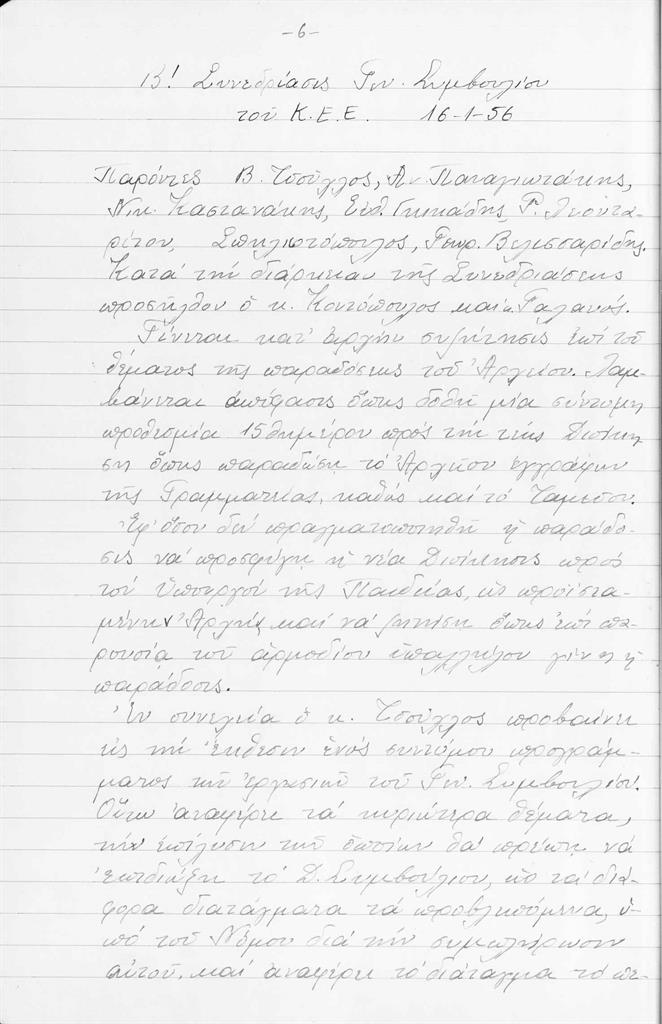 -6-
Β! Συνεδρίασις Γεν. Συμβουλίου
τοῦ Κ.Ε.Ε. 16-1-56
Παρόντες Β. Τσοῦχλος, Αν Παναγιωτάκης,
Νικ. Καστανάκης, Εὐθ. Γκικάδης, Γ. Λεοντα-
ρίτου, Σπηλιωτόπουλος, Γεωρ. Βελισσαρίδης.
Κατά τήν διάρκειαν τῆς Συνεδριάσεως
προσῆλθον ὁ κ. Κοντόπουλος καί κ. Γαλανός.
Γίνεται κατ' ἀρχήν συζήτησις ἐπί τοῦ
θέματος τῆς παραδόσεως τοῦ Ἀρχείου. Λαμ-
βάνεται ἀπόφασις ὅπως δοθῆ μία σύντομη
προθεσμία 15θημέρου πρός τήν τέως Διοίκη
ση ὅπως παραδώση τό Ἀρχεῖον ἐγγράφων
τῆς Γραμματείας, καθώς καί τό Ταμεῖον.
Ἐφ' ὅσον δέν πραγματοποιηθῆ ἡ παράδο-
σις νά προσφύγη ἡ νέα Διοίκησις πρός
τόν Ὑπουργόν τῆς Παιδείας, ὡς προϊστα-
μένης Ἀρχῆς καί νά ζητήση ὅπως ἐπί πα-
ρουσία τοῦ ἁρμοδίου ὑπαλλήλου γίνη ἡ
παράδοσις.
Ἐν συνεχεία ὁ κ. Τσοῦχλος προβαίνει
εἰς τήν ἔκθεσιν ἑνός συντόμου προγράμ-
ματος τῶν ἐργασιῶν τοῦ Γεν. Συμβουλίου.
Οὕτω ἀναφέρει τά κυριώτερα θέματα,
τήν ἐπίλυσιν τῶν ὁποίων θά πρέπη νά
ἐπιδιώξη τό Δ. Συμβούλιον, ὡς τά διά-
φορα διατάγματα τά προβλεπόμενα, ὑ-
πό τοῦ Νόμου διά τήν συμπλήρωσιν
αὐτοῦ, καί ἀναφέρει τό διάταγμα τό πε-